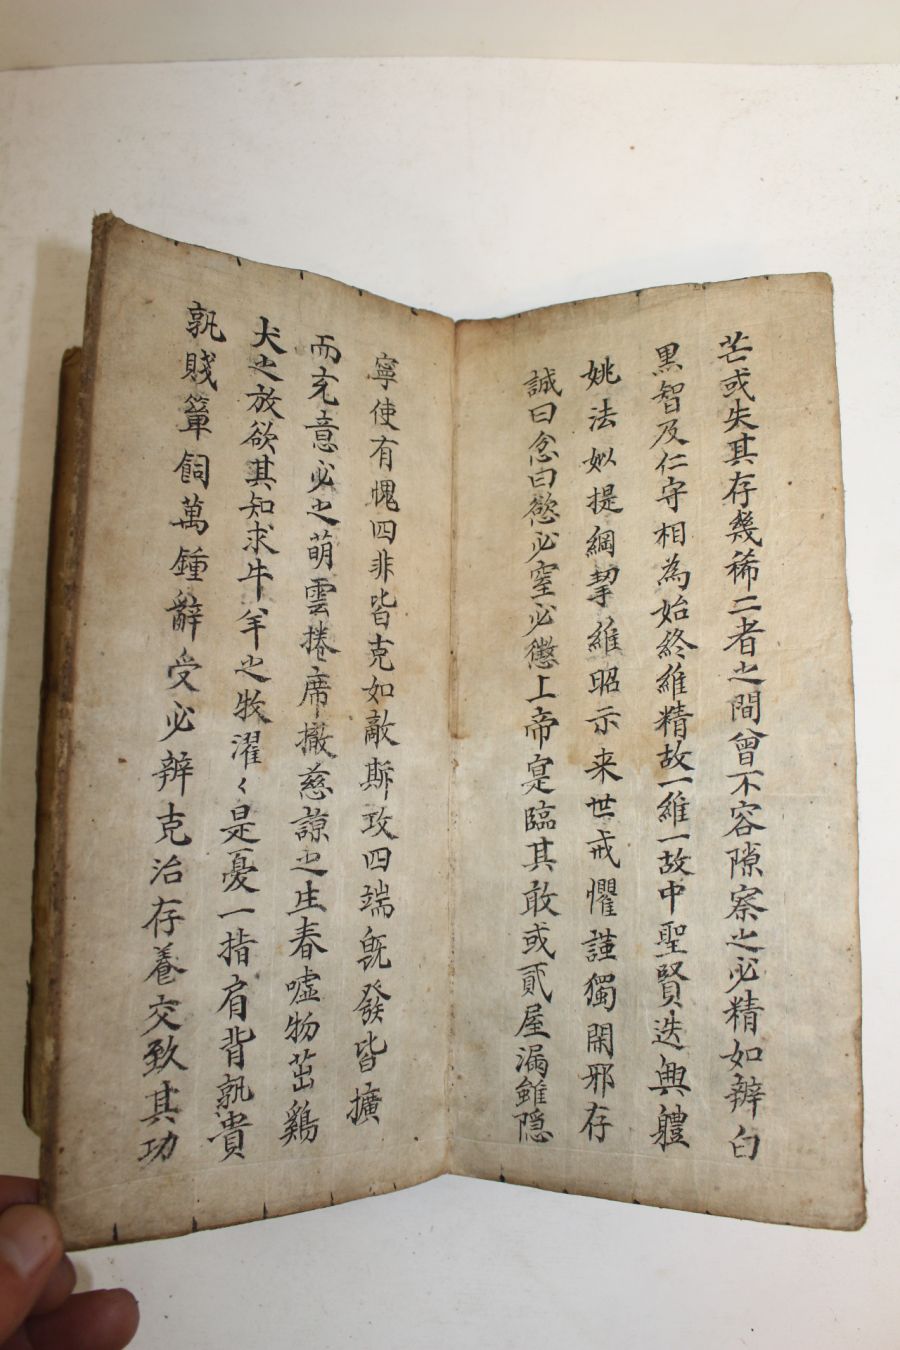 芒或失其存幾稀二者之間曾不容隙察之必精如辨白
黑智及仁守相為始終維精故一維一故中聖賢迭興軆
姚法姒提綱挈維昭示来世戒懼謹獨閑邪存
誠曰忿曰慾必窒必懲上帝寔臨其敢或貳屋漏雖隠
寧使有愧四非皆克如敵斯攻四端旣發皆擴
而充意必之萌雲捲席撤慈諒之生春噓物茁鷄
犬之放欲其知求牛羊之牧濯〻是憂一指肩背孰貴
孰賤簞飼萬鍾辭受必辨克治存養交致其功